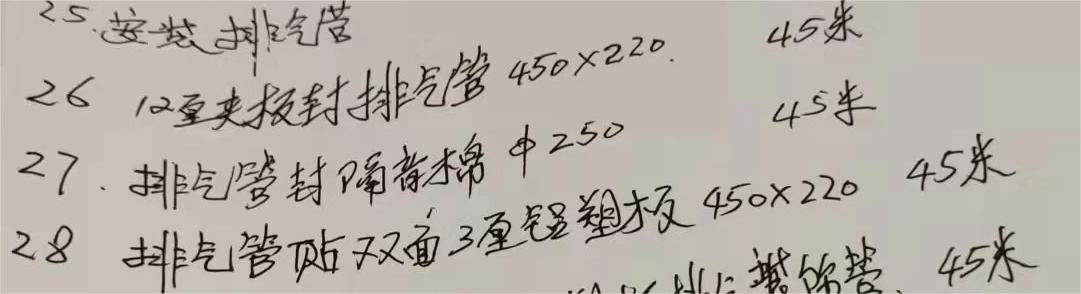 25.安装排气管 45米
26 12厘夹板封排气管 450×220. 45米
27. 排气管封隔音棉 Φ250 45米
28 排气管贴双面3厘铝塑板 450×220 45米